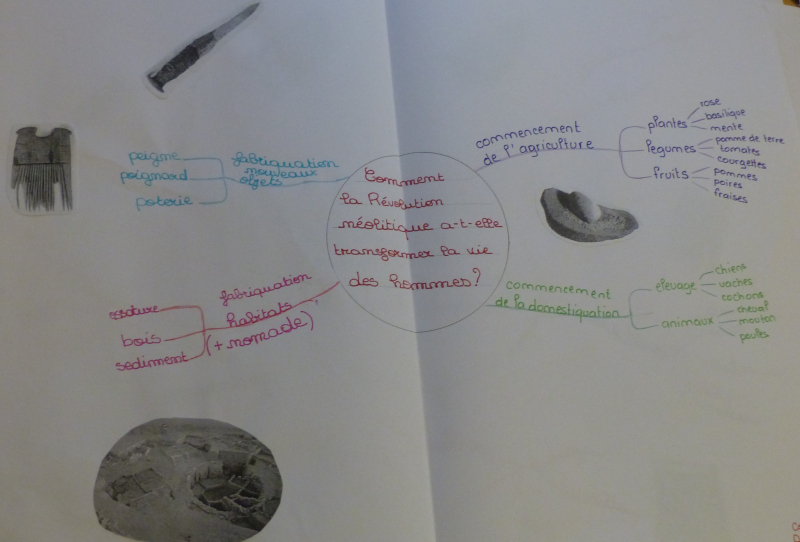 Comment
la Révolution
néolitique a-t-elle
transformer la vie
des hommes?
fabriquation
nouveaux
objets
peigne
poignard
poterie
commencement
de l'agriculture
plantes
rose
basilique
mente
légumes
pomme de terre
tomates
courgettes
fruits
pommes
poires
fraises
commencement
de la domestiquation
élevage
chiens
vaches
cochons
animaux
cheval
mouton
poules
fabriquation
habitats
(+ nomade)
bois
sédiment